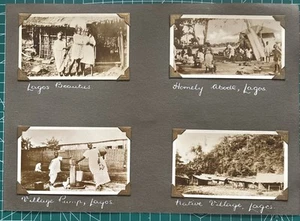 Lagos Beauties
Homely Abode, Lagos.
Village Pump, Lagos
Native Village, Lagos.